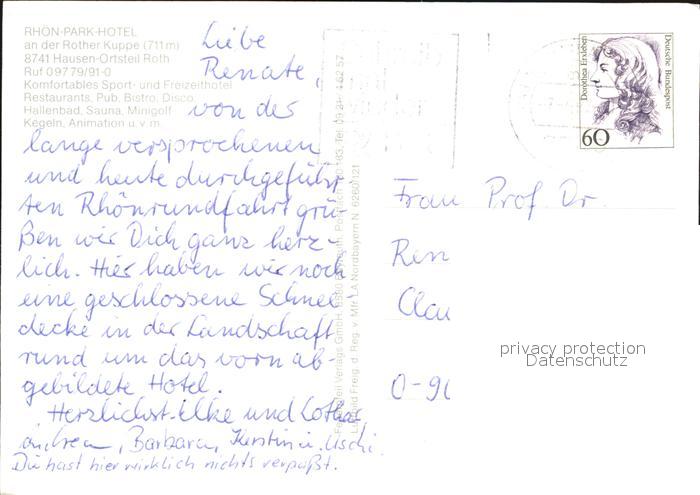 RHÖN-PARK-HOTEL
an der Rother Kuppe (711 m)
8741 Hausen-Ortsteil Roth
Ruf 09779/91-0
Komfortables Sport- und Freizeithotel
Restaurants, Pub, Bistro, Disco
Hallenbad, Sauna, Minigolf
Kegeln, Animation u. v. m.
Liebe
Renate,
von der
lange versprochenen
und heute durchgeführ-
ten Rhönrundfahrt grü-
ßen wir Dich ganz herz-
lich. Hier haben wir noch
eine geschlossene Schnee
decke in der Landschaft
rund um das vorn ab-
gebildete Hotel.
Herzlichst Elke und Lothar
Andrea, Barbara, Kerstin u. Uschi
Du hast hier wirklich nichts verpaßt.
Dorothea Erxleben
Deutsche Bundespost
60
Frau Prof. Dr.
Ren
Clau
O-90
privacy protection
Datenschutz